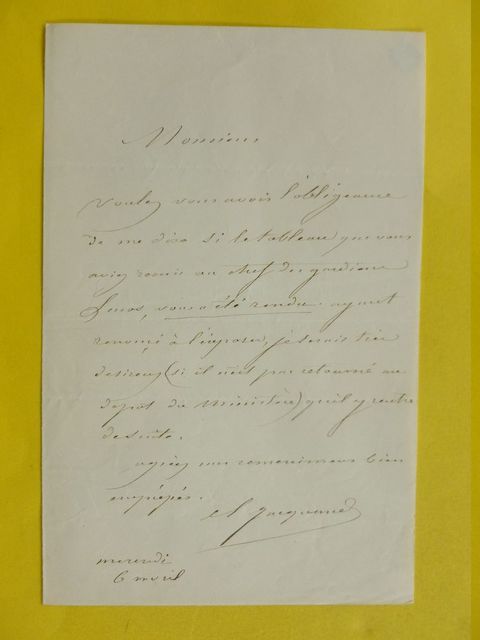 Monsieur
voulez vous avoir l'obligeance
de me dire si le tableau que vous
aviez remis au chef des gardiens
vous a été rendu. ayant
renoncé à l'exposer, je serais très
desireux (si il n'est pas retourné au
depot du Ministère) qu'il y rentre
de suite.
agréez mes remerciemens bien
empressés.
Cl Jacquand
mercredi
6 avril